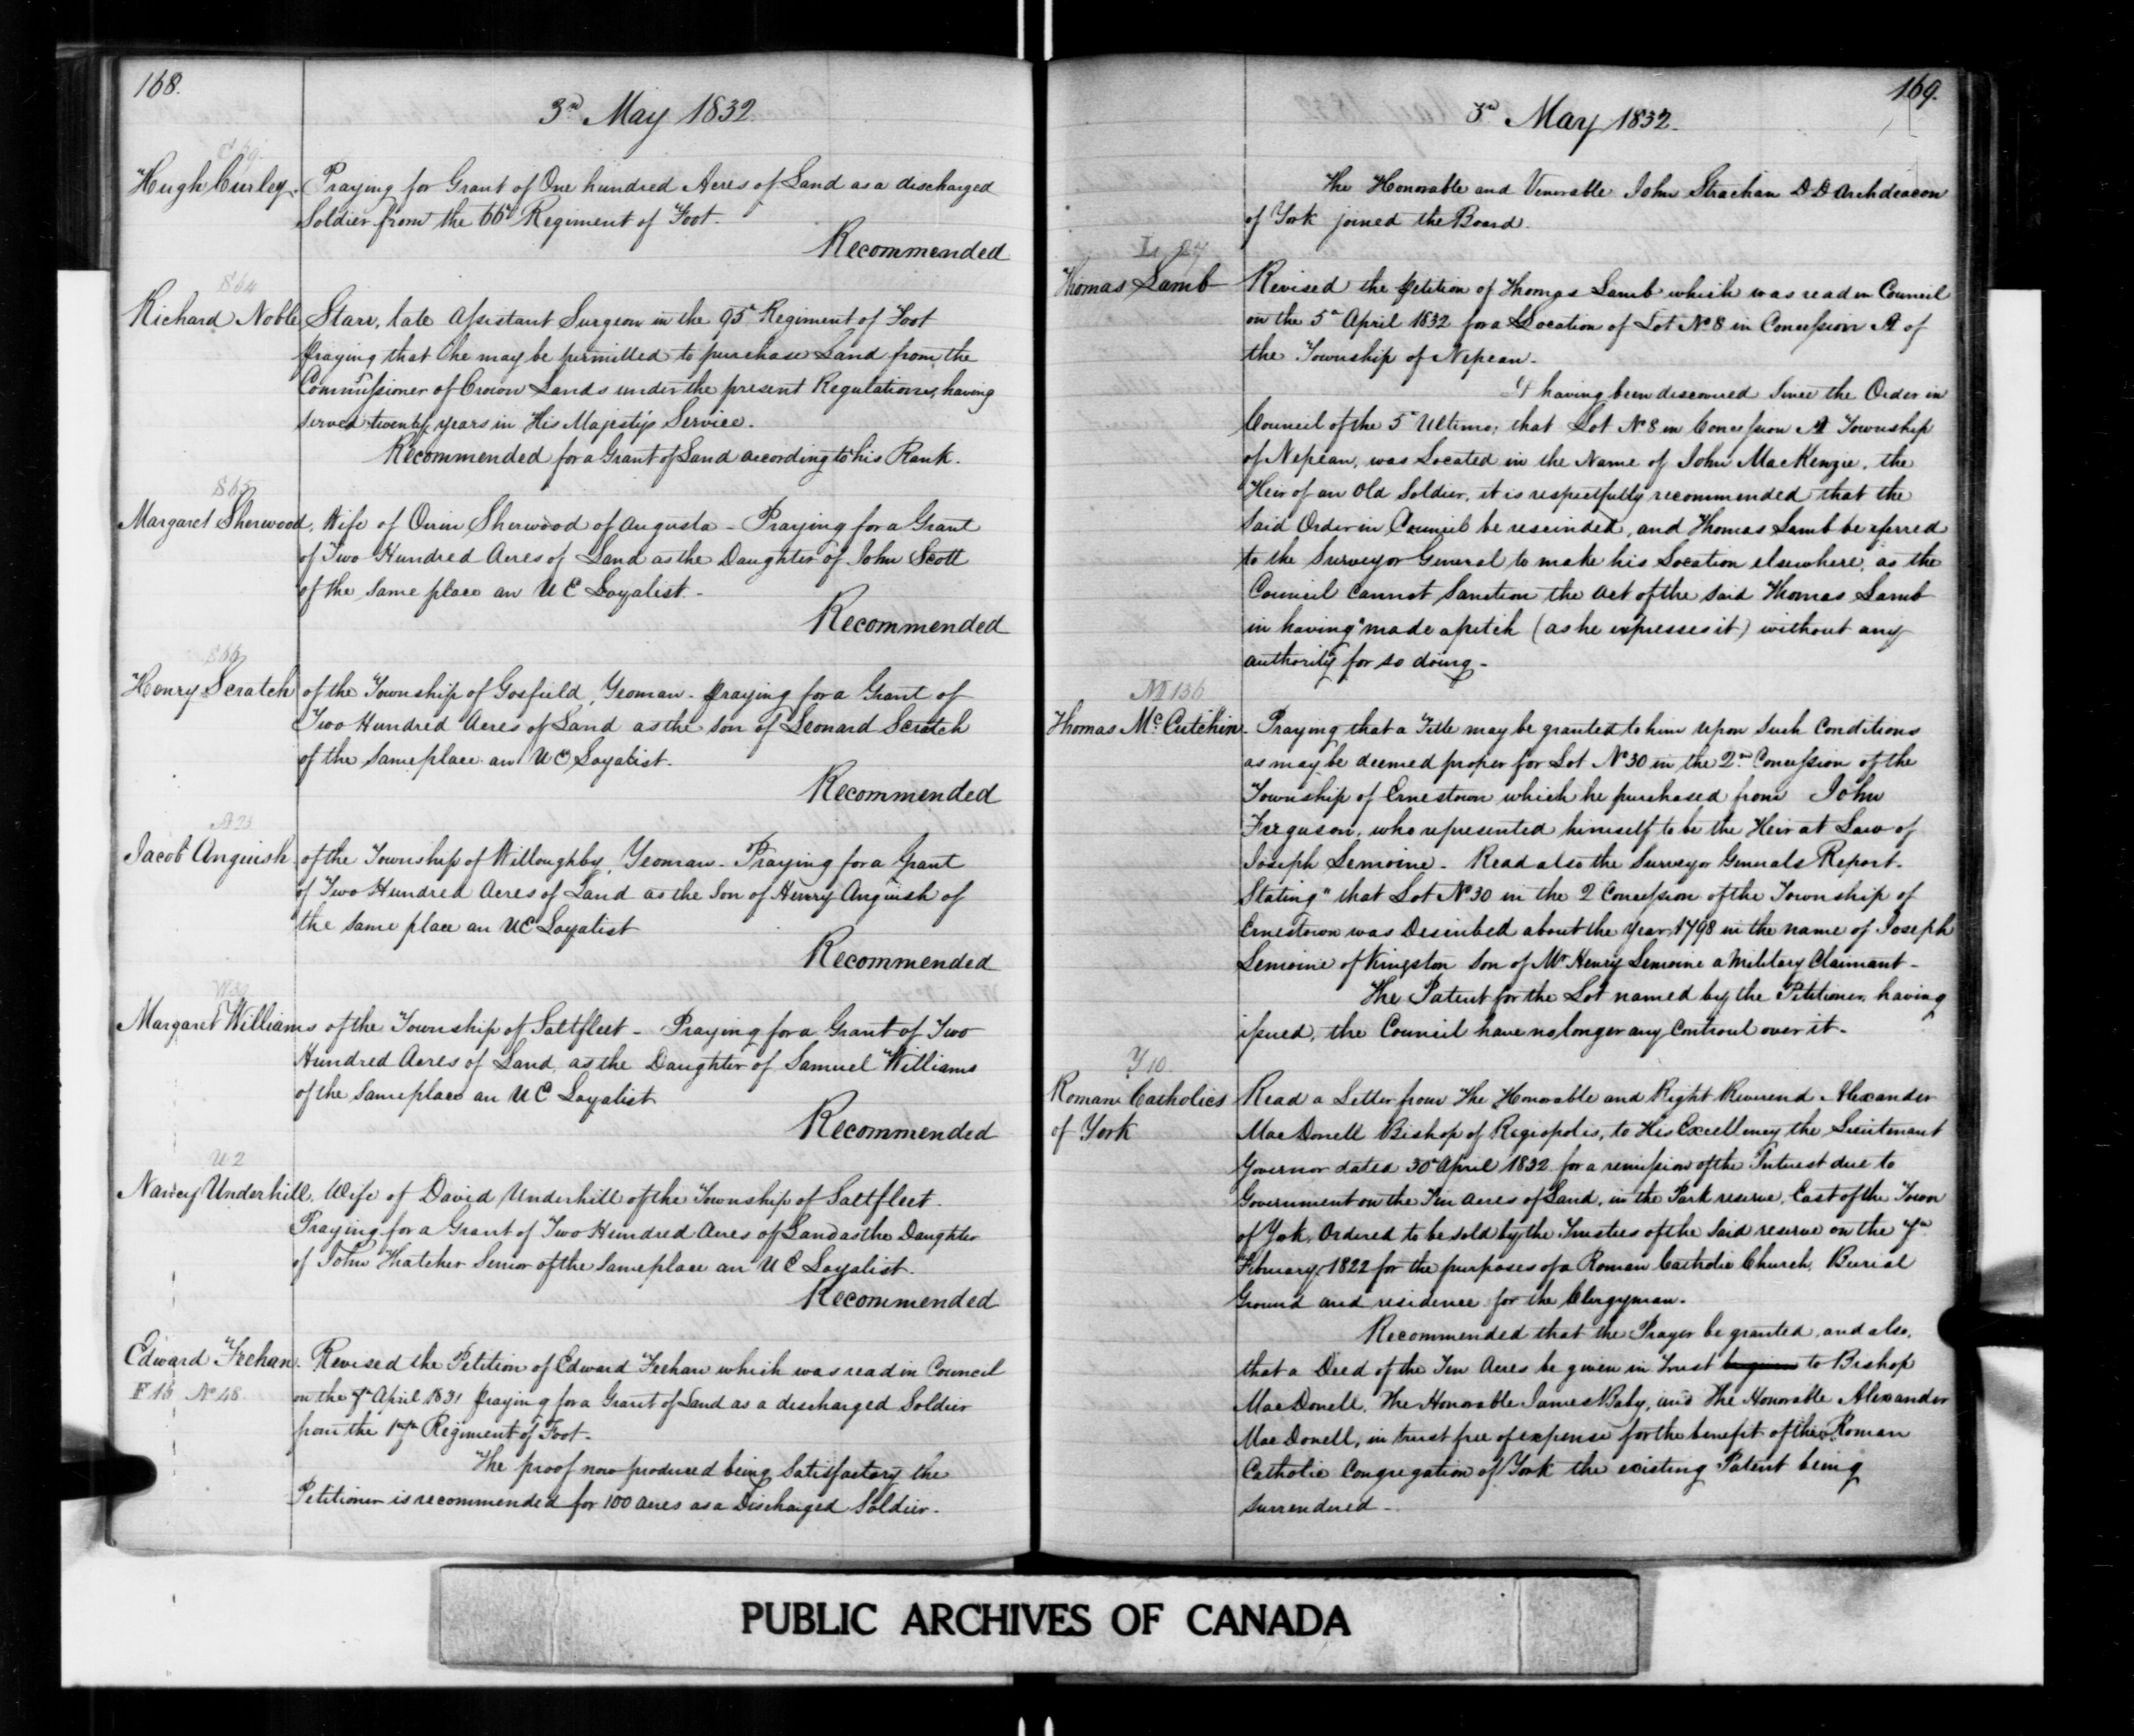 168.
3d May 1832.
C 69
Hugh Curley. Praying for Grant of One hundred Acres of Land as a discharged
Soldier from the 66th Regiment of Foot.
Recommended
S 64
Richard Noble Starr, late Assistant Surgeon in the 95th Regiment of Foot
praying that he may be permitted to purchase Land from the
Commissioner of Crown Lands under the present Regulations, having
served twenty years in His Majesty's Service.
Recommended for a Grant of Land according to his Rank.
S 65
Margaret Sherwood, Wife of Orrin Sherwood of Augusta - Praying for a Grant
of Two Hundred Acres of Land as the Daughter of John Scott
of the same place an U E Loyalist. -
Recommended
S 66
Henry Scratch of the Township of Gosfield, Yeoman - praying for a Grant of
Two Hundred Acres of Land as the son of Leonard Scratch
of the same place an U E Loyalist.
Recommended
A 23
Jacob Anguish of the Township of Willoughby, Yeoman - Praying for a Grant
of Two Hundred Acres of Land as the Son of Henry Anguish of
the same place an UE Loyalist
Recommended
Margaret Williams of the Township of Saltfleet - Praying for a Grant of Two
Hundred Acres of Land, as the Daughter of Samuel Williams
of the same place an U E Loyalist
Recommended
U 2
Nancy Underhill, Wife of David Underhill of the Township of Saltfleet.
Praying for a Grant of Two Hundred Acres of Land as the Daughter
of John Thatcher Senior of the same place an U E Loyalist.
Recommended
Edward Feehan. Revised the Petition of Edward Feehan which was read in Council
F 15 No 48. on the 7th April 1831 praying for a Grant of Land as a discharged Soldier
from the 17th Regiment of Foot.
The proof now produced being Satisfactory the
Petitioner is recommended for 100 acres as a Discharged Soldier.
169.
3d May 1832.
The Honorable and Venerable John Strachan D D Archdeacon
of York joined the Board.
L 27
Thomas Lamb Revised the petition of Thomas Lamb which was read in Council
on the 5th April 1832 for a Location of Lot No 8 in Concession A of
the Township of Nepean.
It having been discovered Since the Order in
Council of the 5th Ultimo, that Lot No 8 in Concession A Township
of Nepean, was Located in the Name of John MacKenzie, the
Heir of an Old Soldier, it is respectfully recommended that the
said Order in Council be rescinded, and Thomas Lamb be referred
to the Surveyor General to make his Location elsewhere, as the
Council cannot Sanction the act of the said Thomas Lamb
in having "made a pitch (as he expresses it) without any
authority for so doing -
M 136
Thomas McCutchin. Praying that a Title may be granted to him upon Such Conditions
as may be deemed proper for Lot No 30 in the 2nd Concession of the
Township of Ernestown which he purchased from John
Ferguson, who represented himself to be the Heir at Law of
Joseph Lemoine - Read also the Surveyor Generals Report.
Stating "that Lot No 30 in the 2 Concession of the Township of
Ernestown was Described about the year 1798 in the name of Joseph
Lemoine of Kingston Son of Mr Henry Lemoine a Military Claimant -
The Patent for the Lot named by the Petitioner, having
issued, the Council have no longer any Controul over it -
Y 10
Roman Catholics Read a Letter from The Honorable and Right Reverend Alexander
of York MacDonell Bishop of Regiopolis, to His Excellency the Lieutenant
Governor dated 30th April 1832 for a remission of the Interest due to
Government on the Ten Acres of Land, in the Park reserve, East of the Town
of York, Ordered to be sold by the Trustees of the Said reserve on the 7th
February, 1822 for the purposes of a Roman Catholic Church, Burial
Ground and residence for the Clergyman.
Recommended that the Prayer be granted, and also,
that a Deed of the Ten Acres be given in Trust to Bishop
MacDonell, The Honorable James Baby, and The Honorable Alexander
MacDonell, in trust free of expense for the benefit of the Roman
Catholic Congregation of York the existing Patent being
surrendered -
PUBLIC ARCHIVES OF CANADA